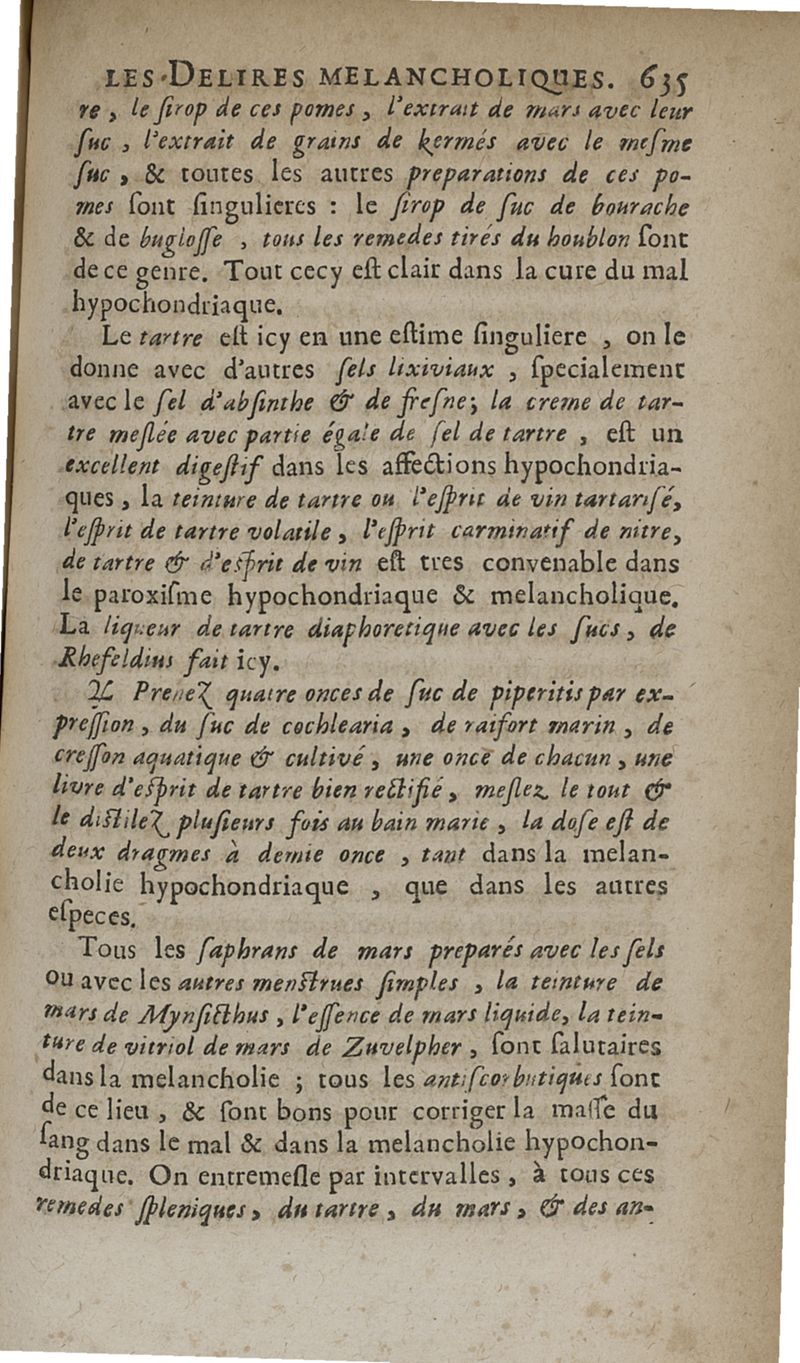 LES DELIRES MELANCHOLIQUES. 635
re, le ſirop de ces pomes, l'extrait de mars avec leur
ſuc, l'extrait de grains de kermés avec le meſme
ſuc, & toutes les autres preparations de ces po-
mes ſont ſingulieres : le ſirop de ſuc de bourache
& de bugloſſe, tous les remedes tirés du houblon ſont
de ce genre. Tout cecy eſt clair dans la cure du mal
hypochondriaque.
Le tartre eſt icy en une eſtime ſinguliere, on le
donne avec d'autres ſels lixiviaux, ſpecialement
avec le ſel d'abſinthe & de freſne; la creme de tar-
tre meſlée avec partie égale de ſel de tartre, eſt un
excellent digeſtif dans les affections hypochondria-
ques, la teinture de tartre ou l'eſprit de vin tartariſé,
l'eſprit de tartre volatile, l'eſprit carminatif de nitre,
de tartre & d'eſprit de vin eſt tres convenable dans
le paroxiſme hypochondriaque & melancholique.
La liqueur de tartre diaphoretique avec les ſucs, de
Rhefeldius fait icy.
♃ Prenez quatre onces de ſuc de piperitis par ex-
preſſion, du ſuc de cochlearia, de raifort marin, de
creſſon aquatique & cultivé, une once de chacun, une
livre d'eſprit de tartre bien rectifié, meſlez le tout &
le diſtilez pluſieurs fois au bain marie, la doſe eſt de
deux dragmes à demie once, tant dans la melan-
cholie hypochondriaque, que dans les autres
eſpeces.
Tous les ſaphrans de mars preparés avec les ſels
ou avec les autres menſtrues ſimples, la teinture de
mars de Mynſicthus, l'eſſence de mars liquide, la tein-
ture de vitriol de mars de Zuvelpher, ſont ſalutaires
dans la melancholie ; tous les antiſcorbutiques ſont
de ce lieu, & ſont bons pour corriger la maſſe du
ſang dans le mal & dans la melancholie hypochon-
driaque. On entremeſle par intervalles, à tous ces
remedes ſpleniques, du tartre, du mars, & des an-